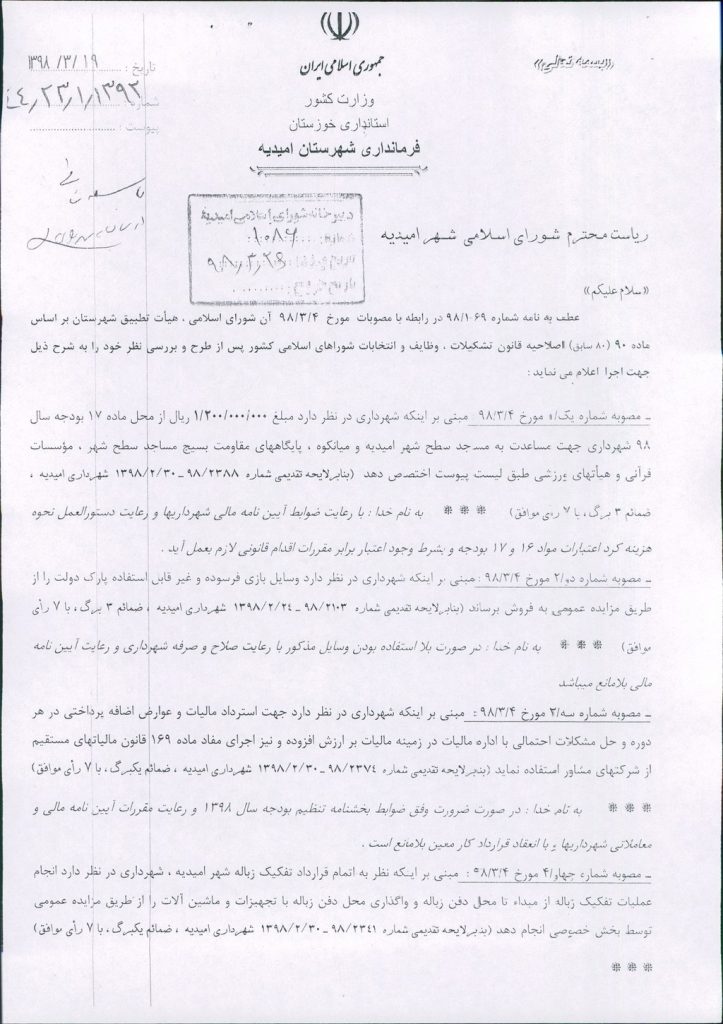 «بسمه تعالی»
جمهوری اسلامی ایران
وزارت کشور
استانداری خوزستان
فرمانداری شهرستان امیدیه
تاریخ : ۱۳۹۸/۳/۱۹
شماره
پیوست :
دبیرخانه شورای اسلامی امیدیه
شماره: ۱۰۸۶
تاریخ ورود: ۹۸/۳/۲۶
تاریخ خروج:
ریاست محترم شورای اسلامی شهر امیدیه
«سلام علیکم»
عطف به نامه شماره ۹۸/۱۰۶۹ در رابطه با مصوبات مورخ ۹۸/۳/۴ آن شورای اسلامی ، هیأت تطبیق شهرستان بر اساس
ماده ۹۰ (۸۰ سابق) اصلاحیه قانون تشکیلات ، وظایف و انتخابات شوراهای اسلامی کشور پس از طرح و بررسی نظر خود را به شرح ذیل
جهت اجرا اعلام می نماید :
ـ مصوبه شماره یک/۱ مورخ ۹۸/۳/۴: مبنی بر اینکه شهرداری در نظر دارد مبلغ ۱/۲۰۰/۰۰۰/۰۰۰ ریال از محل ماده ۱۷ بودجه سال
۹۸ شهرداری جهت مساعدت به مسجد سطح شهر امیدیه و میانکوه ، پایگاههای مقاومت بسیج مساجد سطح شهر ، مؤسسات
قرآنی و هیأتهای ورزشی طبق لیست پیوست اختصاص دهد (بنابرلایحه تقدیمی شماره ۹۸/۲۳۸۸ ـ ۱۳۹۸/۲/۳۰ شهرداری امیدیه ،
ضمائم ۳ برگ ، با ۷ رأی موافق) * * * به نام خدا : با رعایت ضوابط آیین نامه مالی شهرداریها و رعایت دستورالعمل نحوه
هزینه کرد اعتبارات مواد ۱۶ و ۱۷ بودجه و بشرط وجود اعتبار برابر مقررات اقدام قانونی لازم بعمل آید .
ـ مصوبه شماره دو/۲ مورخ ۹۸/۳/۴: مبنی بر اینکه شهرداری در نظر دارد وسایل بازی فرسوده و غیر قابل استفاده پارک دولت را از
طریق مزایده عمومی به فروش برساند (بنابرلایحه تقدیمی شماره ۹۸/۲۱۰۳ ـ ۱۳۹۸/۲/۲۴ شهرداری امیدیه ، ضمائم ۳ برگ ، با ۷ رأی
موافق) * * * به نام خدا : در صورت بلا استفاده بودن وسایل مذکور با رعایت صلاح و صرفه شهرداری و رعایت آیین نامه
مالی بلامانع میباشد
ـ مصوبه شماره سه/۲ مورخ ۹۸/۳/۴: مبنی بر اینکه شهرداری در نظر دارد جهت استرداد مالیات و عوارض اضافه پرداختی در هر
دوره و حل مشکلات احتمالی با اداره مالیات در زمینه مالیات بر ارزش افزوده و نیز اجرای مفاد ماده ۱۶۹ قانون مالیاتهای مستقیم
از شرکتهای مشاور استفاده نماید (بنابرلایحه تقدیمی شماره ۹۸/۲۳۷۴ ـ ۱۳۹۸/۲/۳۰ شهرداری امیدیه ، ضمائم یکبرگ ، با ۷ رأی موافق)
* * * به نام خدا : در صورت ضرورت وفق ضوابط بخشنامه تنظیم بودجه سال ۱۳۹۸ و رعایت مقررات آیین نامه مالی و
معاملاتی شهرداریها و با انعقاد قرارداد کار معین بلامانع است .
ـ مصوبه شماره چهار/۴ مورخ ۹۸/۳/۴ : مبنی بر اینکه نظر به اتمام قرارداد تفکیک زباله شهر امیدیه ، شهرداری در نظر دارد انجام
عملیات تفکیک زباله از مبداء تا محل دفن زباله و واگذاری محل دفن زباله با تجهیزات و ماشین آلات را از طریق مزایده عمومی
توسط بخش خصوصی انجام دهد (بنابرلایحه تقدیمی شماره ۹۸/۲۳۴۱ ـ ۱۳۹۸/۲/۳۰ شهرداری امیدیه ، ضمائم یکبرگ ، با ۷ رأی موافق)
* * *